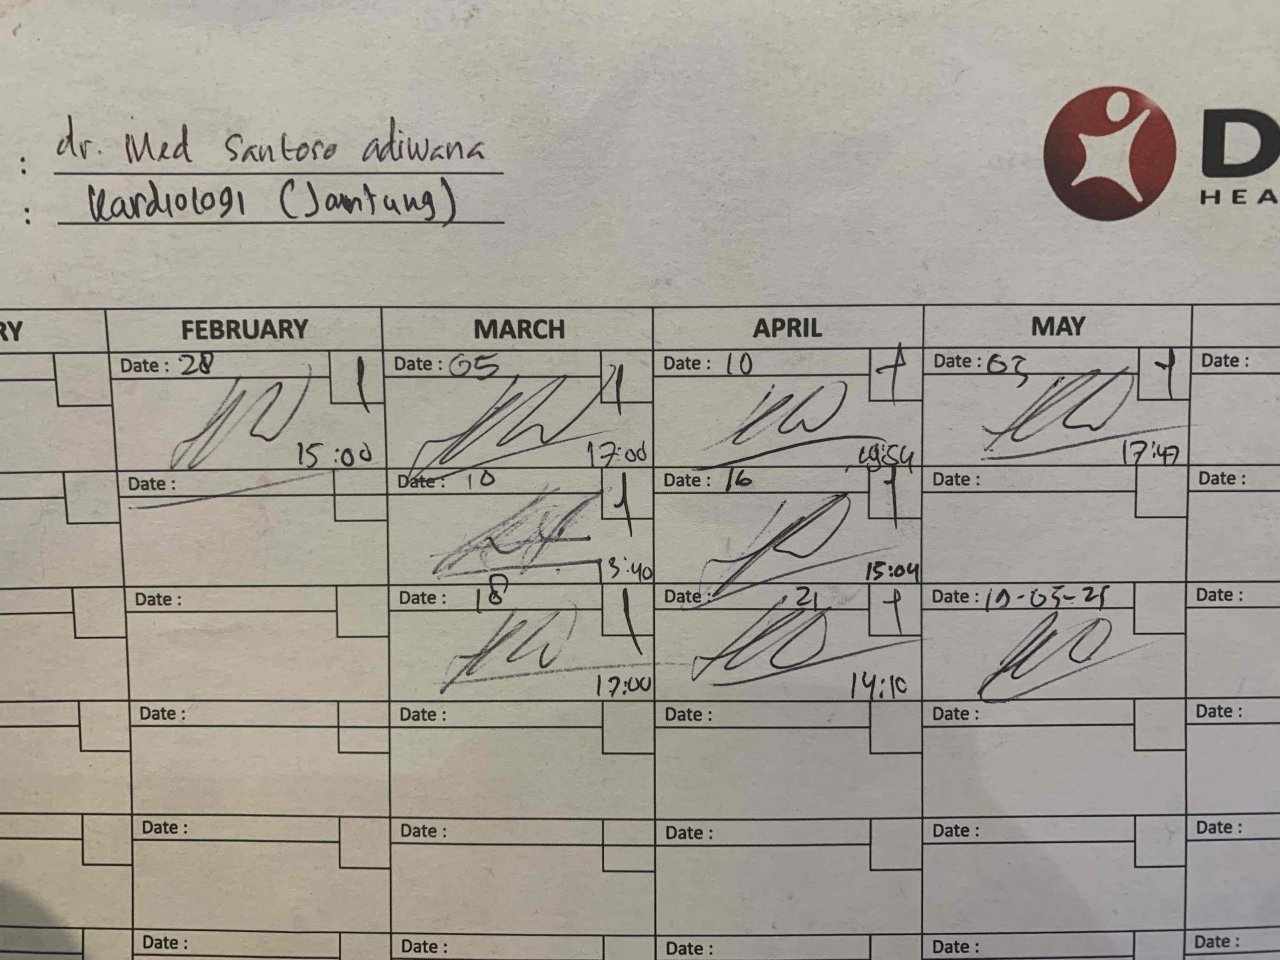 : dr. Med Santoso adiwana
: Kardiologi (Jantung)
D
HEA
RY FEBRUARY MARCH APRIL MAY
Date : 28 1 Date : 05 1 Date : 10 1 Date : 03 1 Date :
15:00 17:00 19:54 17:47
Date : Date : 10 1 Date : 16 1 Date : Date :
3:40 15:04
Date : Date : 18 1 Date : 21 1 Date : 19-05-25 Date :
17:00 14:10
Date : Date : Date : Date : Date :
Date : Date : Date : Date : Date :
Date : Date : Date : Date : Date :